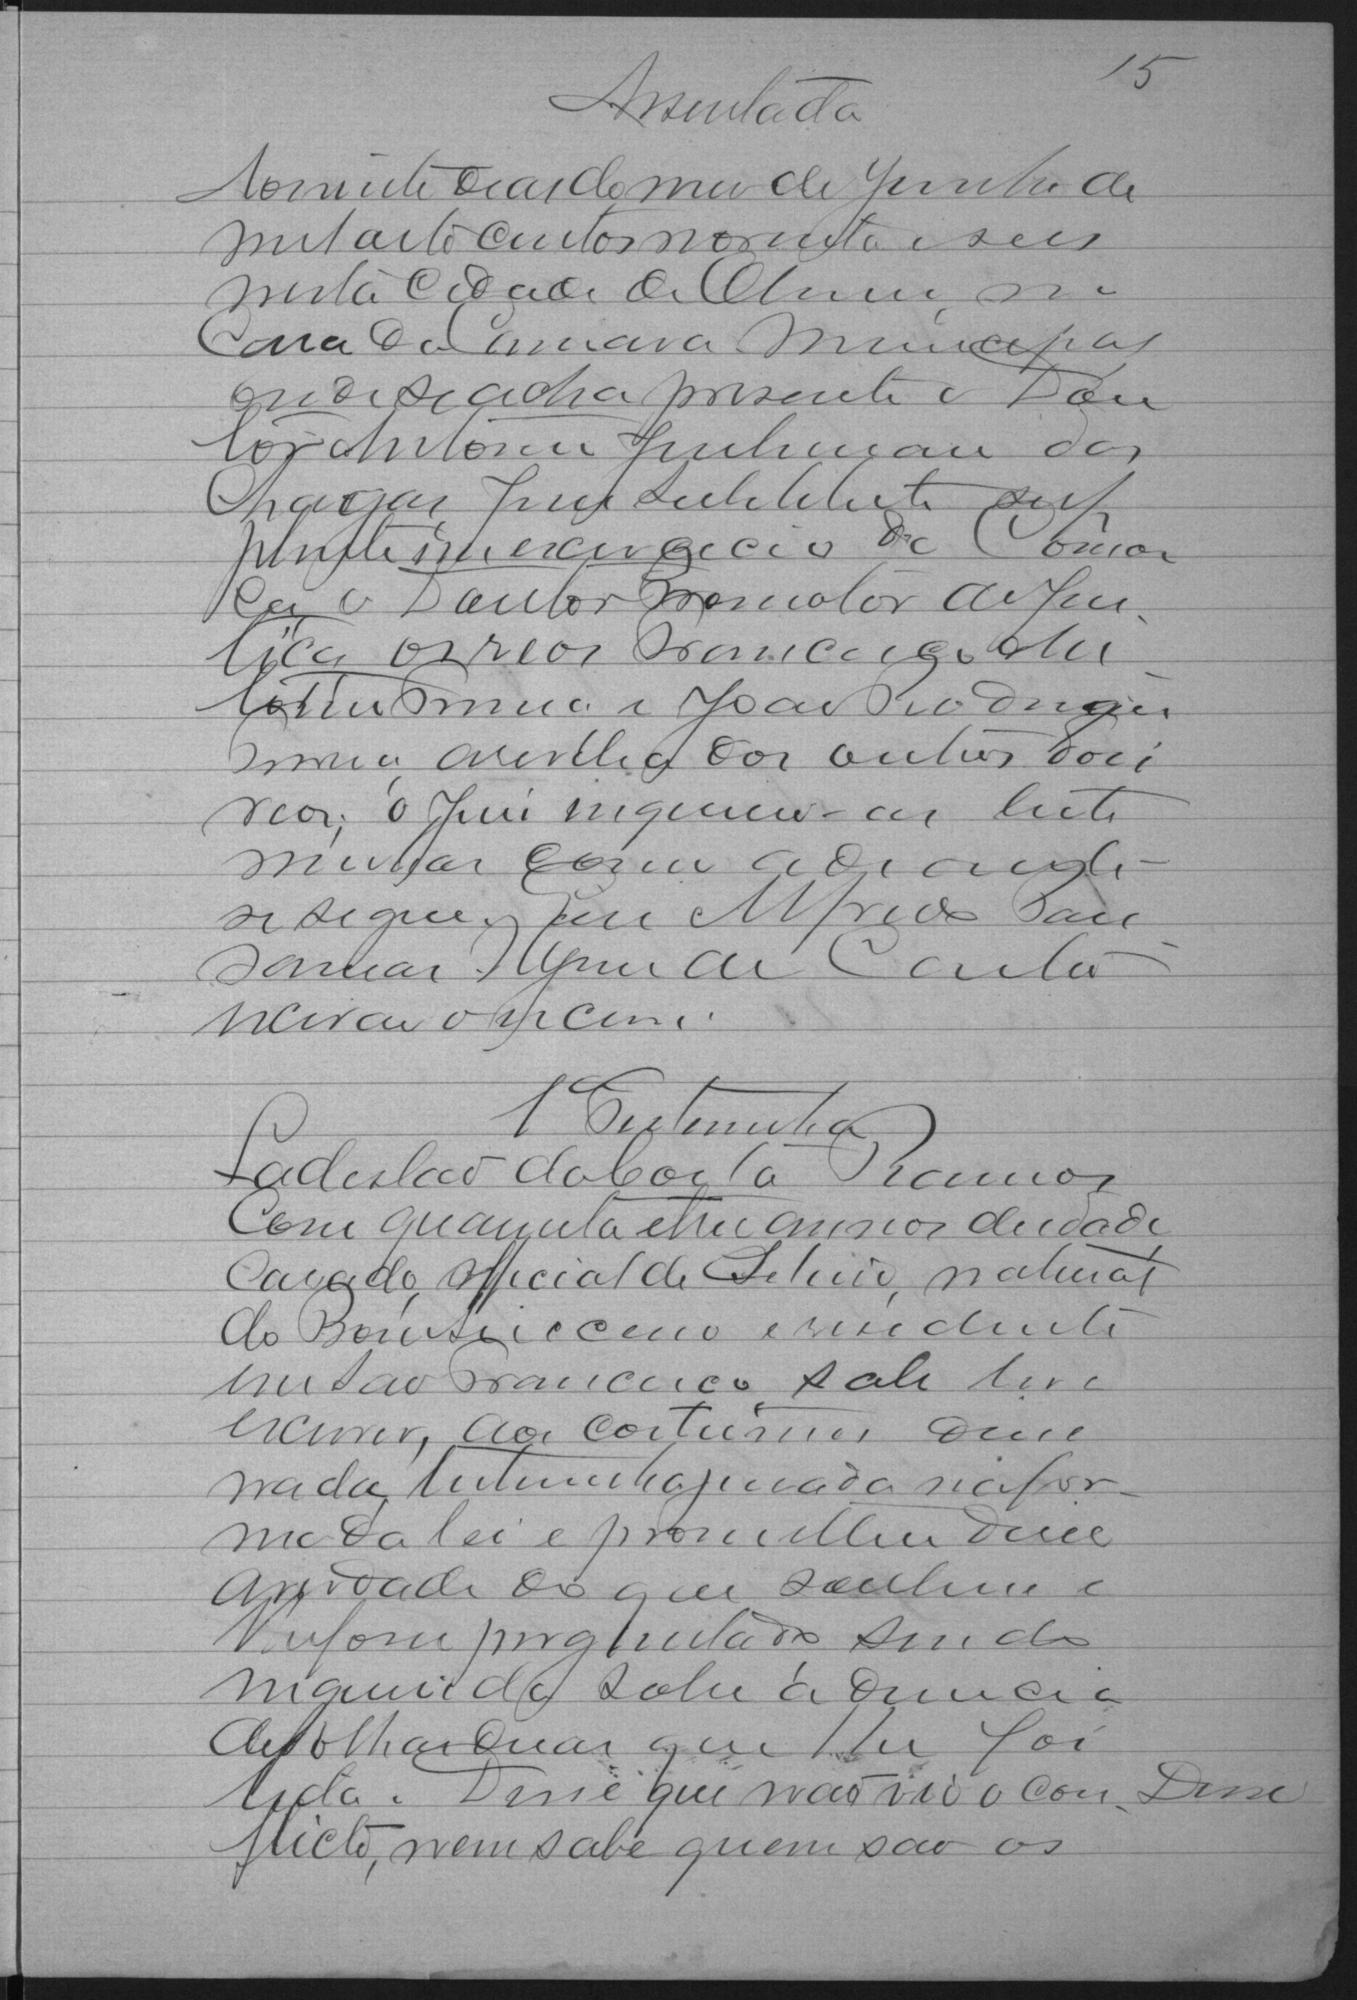 15
Assentada
Aos vinte dias do mez de Junho de
mil oito centos noventa e seis
nesta Cidade de Oliveira, na
Casa da Camara Municipal
onde se acha presente o Dou
tor Antonio Justiniano das
Chagas, Juiz Substituto sup
plente em exercicio da Comar
ca, o Doutor Promotor de Jus
tiça os reos Francisco
e João Rodrigues
a revelia dos outros dois
reos, o Juiz inquerio as teste
munhas como adiante
se segue. Eu Alfredo
de Castro
escrivão o escrevi.
1ª Testemunha
Ladeslao da Costa Ramos
Com quarenta e tres annos de idade
Casado, official de Selleiro, natural
do Bom Successo e residente
em São Francisco, sabe ler e
escrever, aos costumes disse
nada, testemunha jurada na for-
ma da lei e prometteu dizer
a verdade do que soubesse e
lhe fosse perguntado sendo
inquerido sobre a denuncia
de folhas duas que lhe foi
lida. Disse que não vio o con- Disse
flicto, nem sabe quem são os